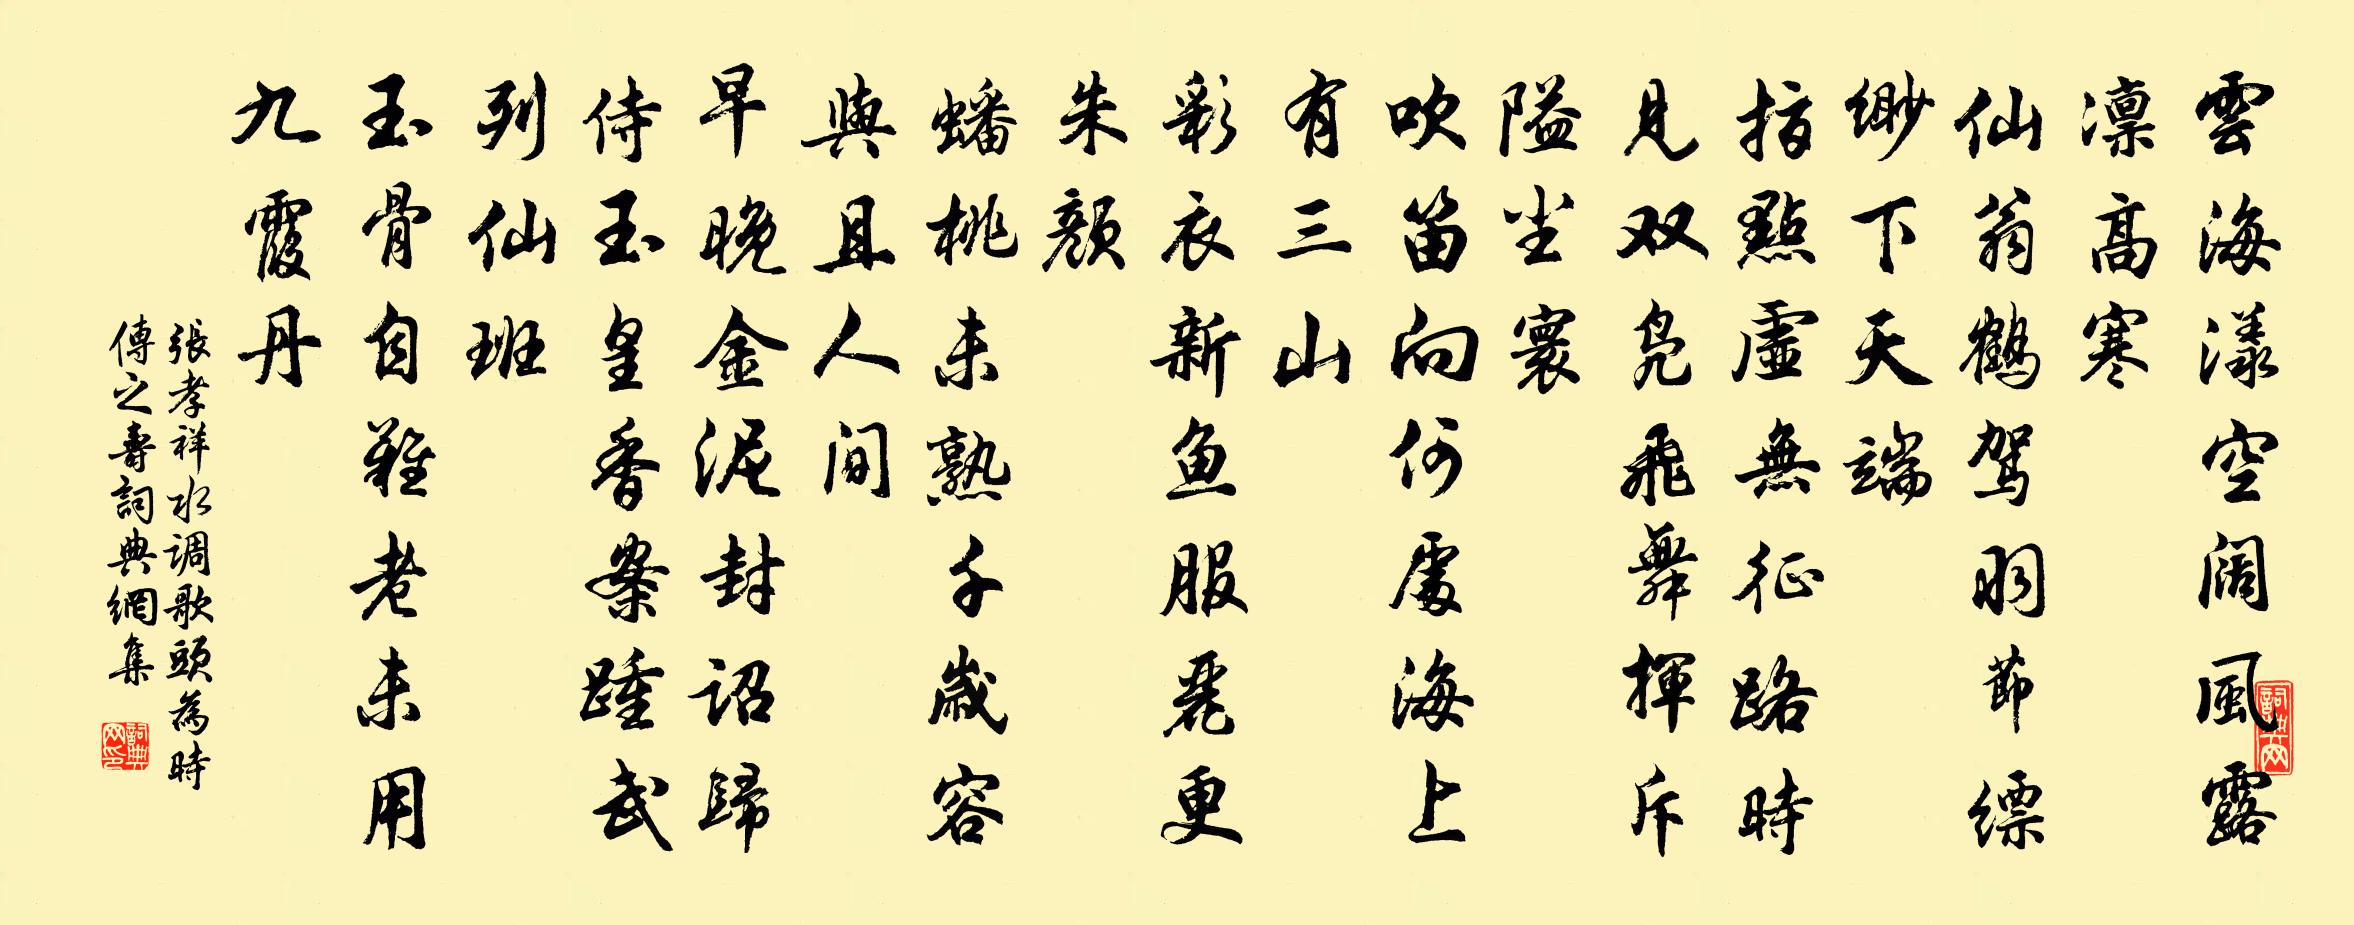 雲海漾空阔風露
凛高寒
仙翁鶴駕羽節缥
缈下天端
指點虛無征路時
見双凫飛舞揮斥
隘尘寰
吹笛向何處海上
有三山
彩衣新魚服麗更
朱颜
蟠桃未熟千歲容
與且人间
早晚金泥封诏歸
侍玉皇香案踵武
列仙班
玉骨自難老未用
九霞丹
張孝祥水调歌頭為時
傳之壽詞典網集
詞典网
詞典网印